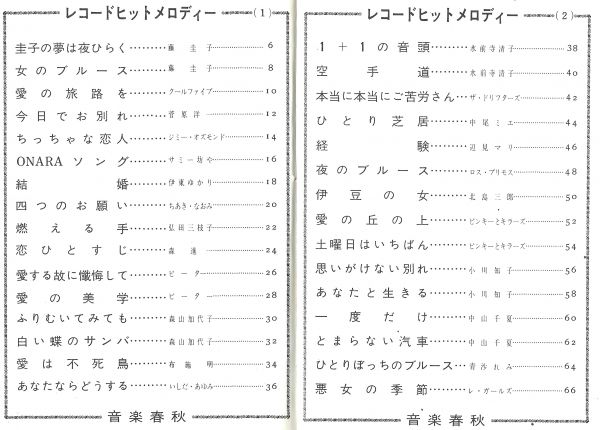 レコードヒットメロディー (1)
圭子の夢は夜ひらく………藤圭子………6
女のブルース………藤圭子………8
愛の旅路を………クールファイブ………10
今日でお別れ………菅原洋一………12
ちっちゃな恋人………ジミー・オズモンド………14
ONARAソング………サミー坊や………16
結婚………伊東ゆかり………18
四つのお願い………ちあき・なおみ………20
燃える手………弘田三枝子………22
恋ひとすじ………森進一………24
愛する故に懺悔して………ピーター………26
愛の美学………ピーター………28
ふりむいてみても………森山加代子………30
白い蝶のサンバ………森山加代子………32
愛は不死鳥………布施明………34
あなたならどうする………いしだ・あゆみ………36
音楽春秋
レコードヒットメロディー (2)
1+1の音頭………水前寺清子………38
空手道………水前寺清子………40
本当に本当にご苦労さん…ザ・ドリフターズ………42
ひとり芝居………中尾ミエ………44
経験………辺見マリ………46
夜のブルース………ロス・プリモス………48
伊豆の女………北島三郎………50
愛の丘の上………ピンキーとキラーズ………52
土曜日はいちばん………ピンキーとキラーズ………54
思いがけない別れ………小川知子………56
あなたと生きる………小川知子………58
一度だけ………中山千夏………60
とまらない汽車………中山千夏………62
ひとりぼっちのブルース…青沙れみ………64
悪女の季節………レ・ガールズ………66
音楽春秋